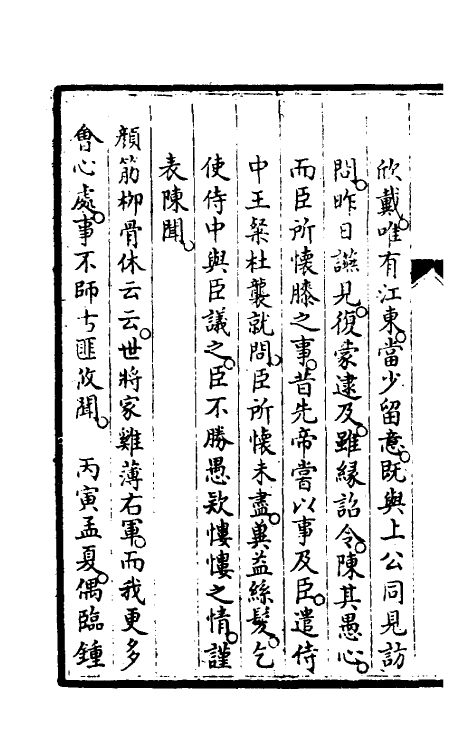 欣戴。唯有江東。當少留意。既與上公同見訪
問。昨日讌見。復蒙逮及。雖緣詔令。陳其愚心。
而臣所懷膝之事。昔先帝嘗以事及臣。遣侍
中王粲杜襲就問。臣所懷未盡。冀益絲髮。乞
使侍中與臣議之。臣不勝愚欵慺慺之情。謹
表陳聞。
顔筋栁骨休云云。世將家雞薄右軍。而我更多
會心處。事不師古匪攸聞。　丙寅孟夏。偶臨鍾